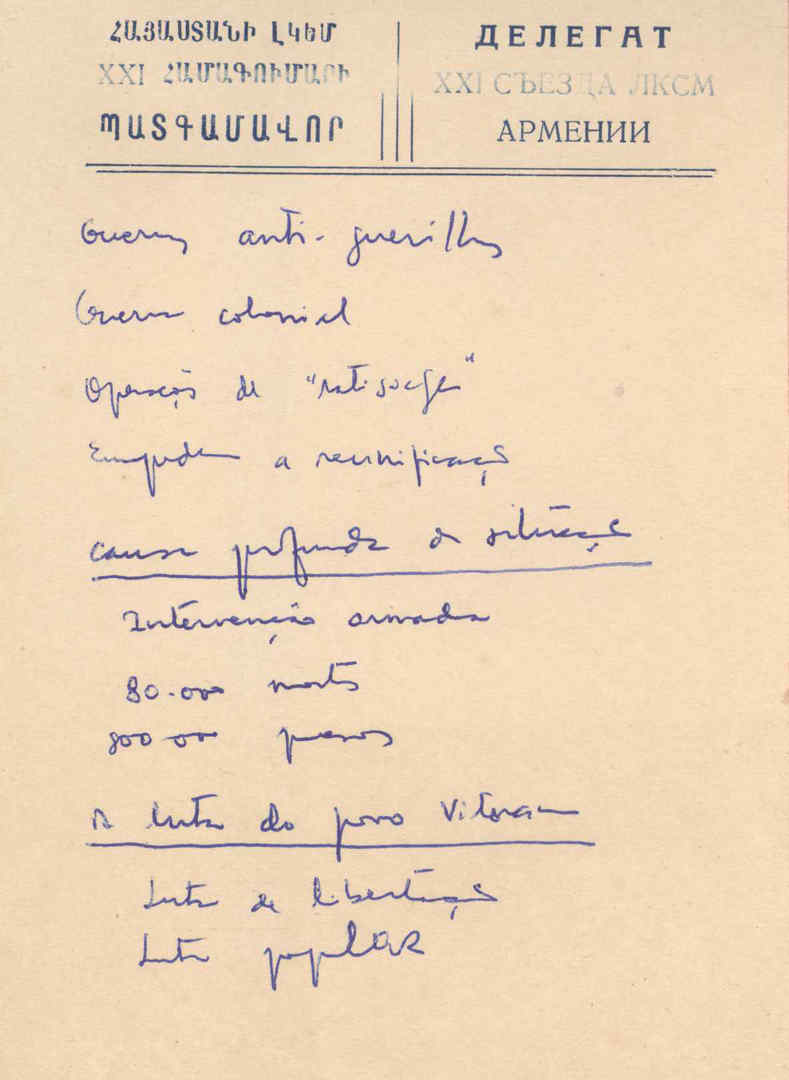 ՀԱՅԱՍՏԱՆԻ ԼԿԵՄ
XXI ՀԱՄԱԳՈՒՄԱՐԻ
ՊԱՏԳԱՄԱՎՈՐ
ДЕЛЕГАТ
XXI СЪЕЗДА ЛКСМ
АРМЕНИИ
Guerra anti-guerilha
Guerra colonial
Operação de "ratissage"
Empedem a reunificação
Causa profunda da situação
Intervenção armada
80.000 mortos
800 000 presos
A luta do povo Vitnam
Luta de libertação
Luta popular